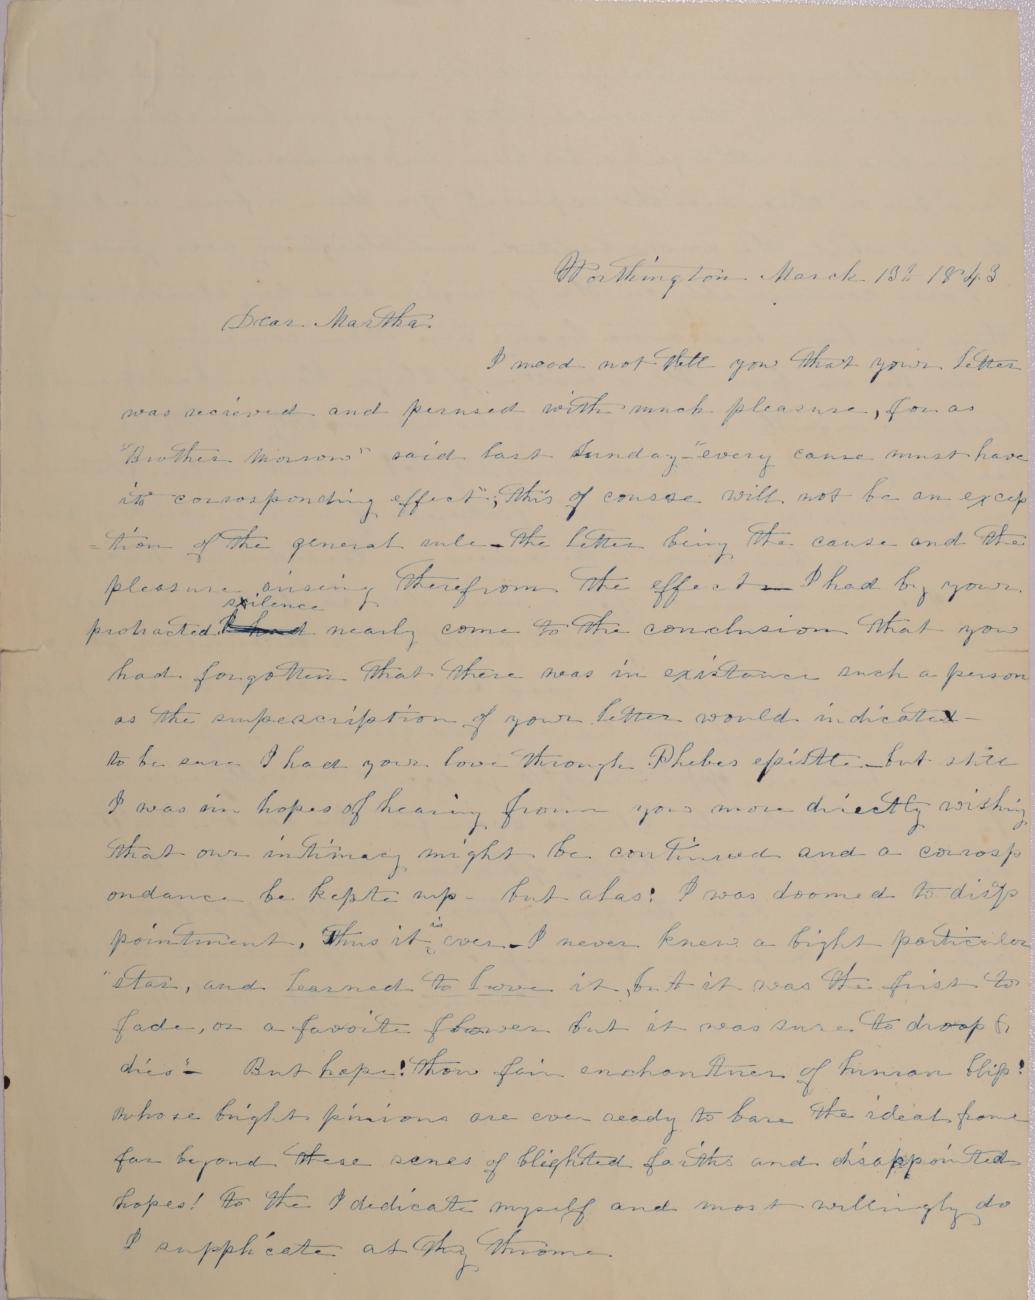 Worthington March 13th 1843
Dear Martha.
I need not tell you that your letter
was recieved and perused with much pleasure, for as
"Brother Morrow" said last Sunday - "every cause must have
its corrosponding effect"; this of course will not be an excep
=tion of the general rule - the letter being the cause and the
pleasure arising therefrom the effect - I had by your
protracted silence nearly come to the conclusion that you
had forgotten that there was in existance such a person
as the superscription of your letter would indicate -
to be sure I had your love through Phebes epistle - but still
I was in hopes of hearing from you more directly wishing
that our intimacy might be continued and a corrosp
ondance be kepte up - but alas! I was doomed to disap
pointment, Thus it is ever - I never knew a bight particular
"star, and learned to love it, but it was the first to
fade, or a favoite flower but it was sure to droop &
dies" - But hope! thou fair enchantner of human bliss!
whose bright pinions are ever ready to bare the ideal frome
far beyond these scnes of blighted faiths and disappointed
hopes! to the I dedicate myself and most willingly do
I supplicate at thy throne